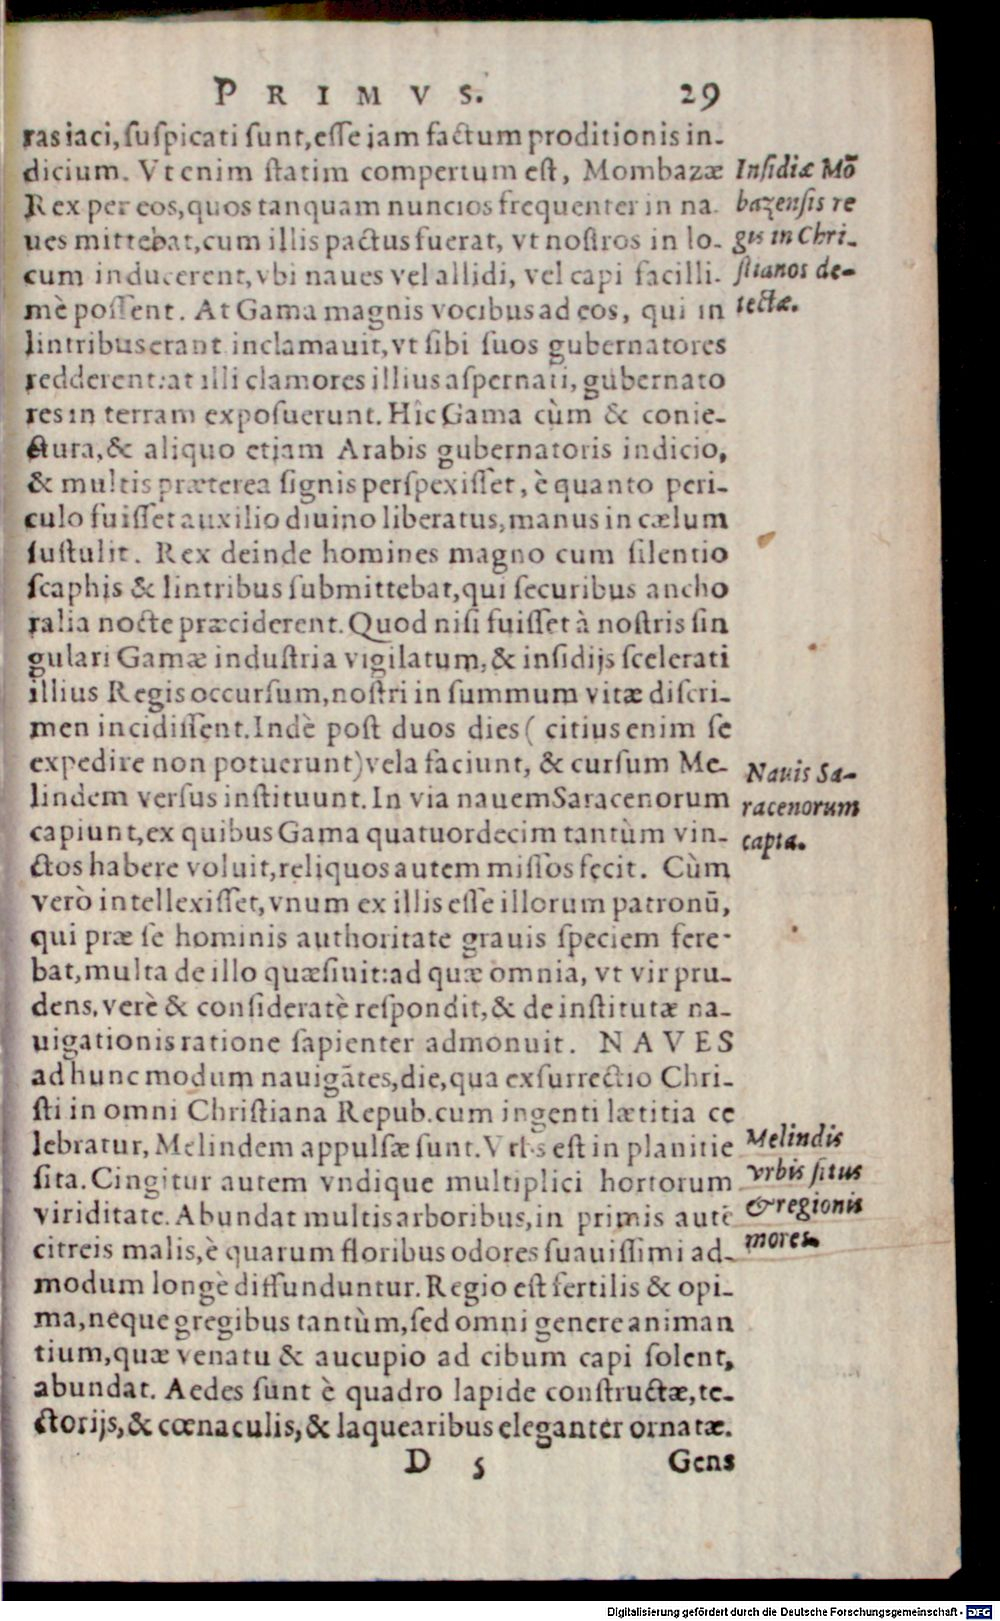 PRIMVS. 29
ras iaci, suspicati sunt, esse iam factum proditionis in-
dicium. Vt enim statim compertum est, Mombazæ
Rex per eos, quos tanquam nuncios frequenter in na-
ues mittebat, cum illis pactus fuerat, vt nostros in lo-
cum inducerent, vbi naues vel allidi, vel capi facilli-
mè possent. At Gama magnis vocibus ad eos, qui in
lintribus erant inclamauit, vt sibi suos gubernatores
redderent: at illi clamores illius aspernati, gubernato
res in terram exposuerunt. Hîc Gama cùm & conie-
ctura, & aliquo etiam Arabis gubernatoris indicio,
& multis præterea signis perspexisset, è quanto peri-
culo fuisset auxilio diuino liberatus, manus in cælum
sustulit. Rex deinde homines magno cum silentio
scaphis & lintribus submittebat, qui securibus ancho
ralia nocte præciderent. Quod nisi fuisset à nostris sin
gulari Gamæ industria vigilatum, & insidijs scelerati
illius Regis occursum, nostri in summum vitæ discri-
men incidissent. Indè post duos dies ( citius enim se
expedire non potuerunt) vela faciunt, & cursum Me-
lindem versus instituunt. In via nauem Saracenorum
capiunt, ex quibus Gama quatuordecim tantùm vin-
ctos habere voluit, reliquos autem missos fecit. Cùm
verò intellexisset, vnum ex illis esse illorum patronū,
qui præ se hominis authoritate grauis speciem fere-
bat, multa de illo quæsiuit: ad quæ omnia, vt vir pru-
dens, verè & consideratè respondit, & de institutæ na-
uigationis ratione sapienter admonuit. NAVES
ad hunc modum nauigãtes, die, qua exsurrectio Chri-
sti in omni Christiana Repub. cum ingenti lætitia ce
lebratur, Melindem appulsæ sunt. Vrbs est in planitie
sita. Cingitur autem vndique multiplici hortorum
viriditate. Abundat multis arboribus, in primis autē
citreis malis, è quarum floribus odores suauissimi ad-
modum longè diffunduntur. Regio est fertilis & opi-
ma, neque gregibus tantùm, sed omni genere animan
tium, quæ venatu & aucupio ad cibum capi solent,
abundat. Aedes sunt è quadro lapide constructæ, te-
ctorijs, & cœnaculis, & laquearibus eleganter ornatæ.
D 5 Gens
Insidiæ Mō
bazensis re
gis in Chri-
stianos de-
tectæ.
Nauis Sa-
racenorum
capta.
Melindis
vrbis situs
& regionis
mores.
Digitalisierung gefördert durch die Deutsche Forschungsgemeinschaft - DFG